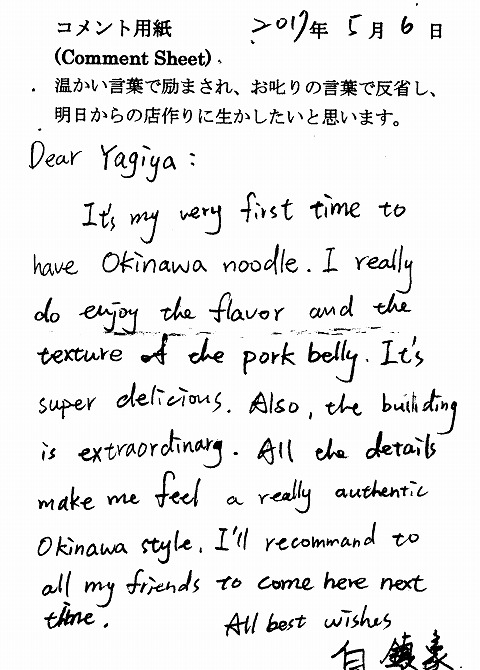 コメント用紙 2017年 5月 6日
(Comment Sheet)
温かい言葉で励まされ、お叱りの言葉で反省し、
明日からの店作りに生かしたいと思います。
Dear Yagiya:
It's my very first time to
have Okinawa noodle. I really
do enjoy the flavor and the
texture of the pork belly. It's
super delicious. Also, the building
is extraordinary. All the details
make me feel a really authentic
Okinawa style. I'll recommand to
all my friends to come here next
time.
All best wishes
白鎮豪